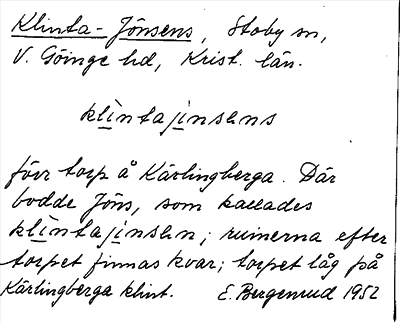 Klinta-Jönsens, Stoby sn,
V. Göinge hd, Krist. län.
klintajinsens
förr torp å Kärlingberga. Där
bodde Jöns, som kallades
klintajinsen; ruinerna efter
torpet finnas kvar; torpet låg på
Kärlingberga klint. E. Bergenrud 1952